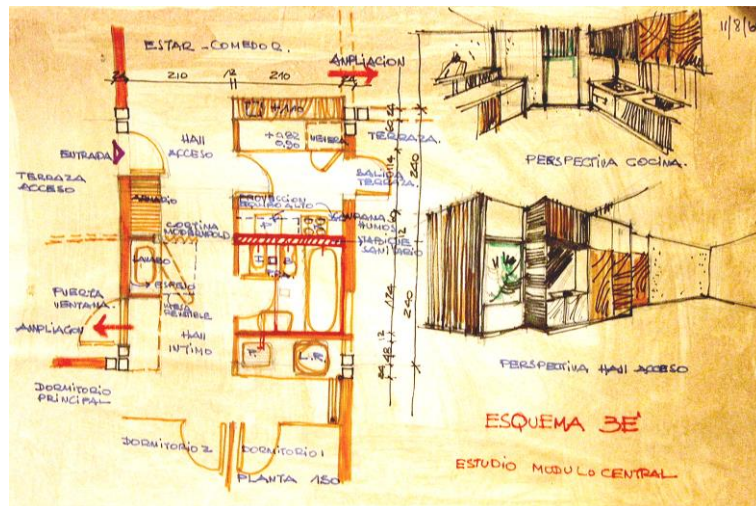 ESTAR - COMEDOR.
AMPLIACION
24
210
12
210
24
11/8/6
HALL
ACCESO
ENTRADA
TERRAZA
ACCESO
ARMARIO
+0,82
0,90
NEVERA
TERRAZA.
SALIDA
TERRAZA.
PROYECCION
EQUIPO ALTO
CORTINA
MODERNFOLD
CAMPANA
HUMOS
TABIQUE
SANITARIO
LAVABO
ESPEJO
PUERTA
VENTANA.
AMPLIACION
HALL
INTIMO
L.R
DORMITORIO
PRINCIPAL
DORMITORIO 2
DORMITORIO 1
PLANTA 1:50
240
240
174
12
48
24
PERSPECTIVA COCINA.
PERSPECTIVA HALL ACCESO
ESQUEMA 3E'
ESTUDIO MODULO CENTRAL